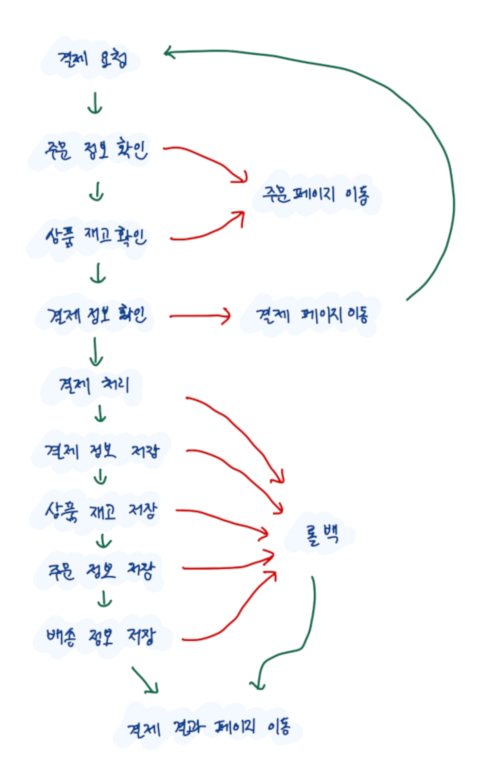 결제 요청
주문 정보 확인
주문페이지 이동
상품 재고 확인
결제 정보 확인
결제 페이지 이동
결제 처리
결제 정보 저장
상품 재고 저장
롤백
주문 정보 저장
배송 정보 저장
결제 결과 페이지 이동